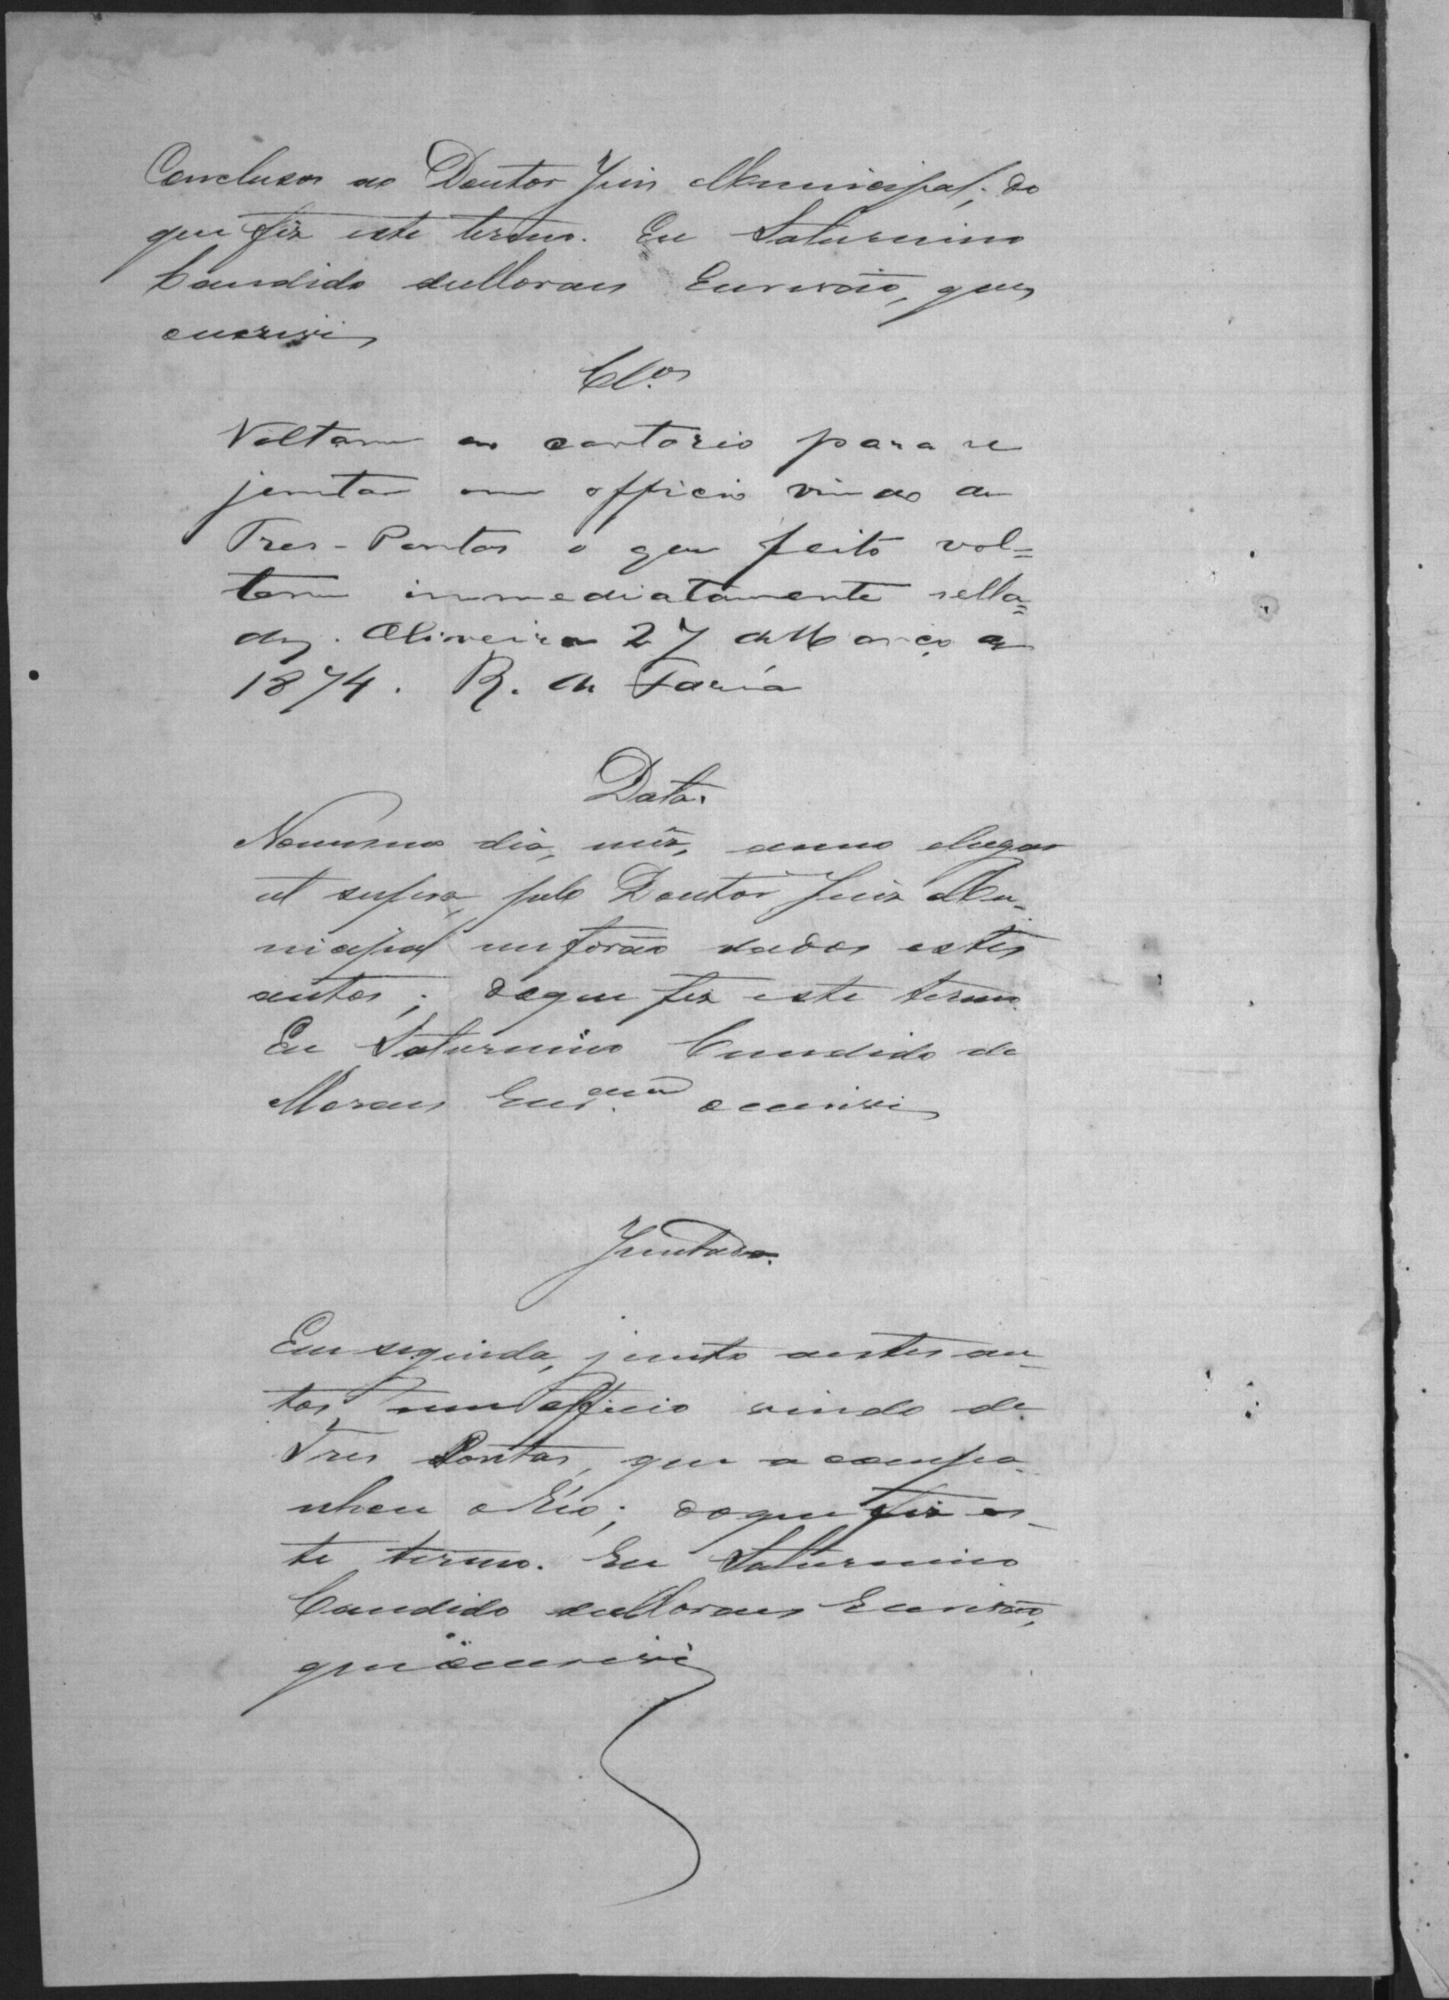 Conclusos ao Doutor Juis Municipal; do
que fiz este termo. Eu Saturnino
Candido de Moraes Escrivão, que
escrevi
Cl.os
Voltem ao cartorio para se
juntar um officio vindo de
Tres-Pontas o que feito vol=
tem immediatamente sella=
dos. Oliveira 27 de Março de
1874. R. de Faria
Data.
No mesmo dia, mês, anno e lugar
ut supra, pelo Doutor Juiz Mu-
nicipal me forão dados estes
autos; do que fiz este termo.
Eu Saturnino Candido de
Moraes Escr.am o escrevi
Juntada.
Em seguida, junto a estes au-
tos um officio vindo de
Tres Pontas, que acompa-
nhou o Réo; do que fiz es-
te termo. Eu Saturnino
Candido de Moraes Escrivão,
que o escrevi